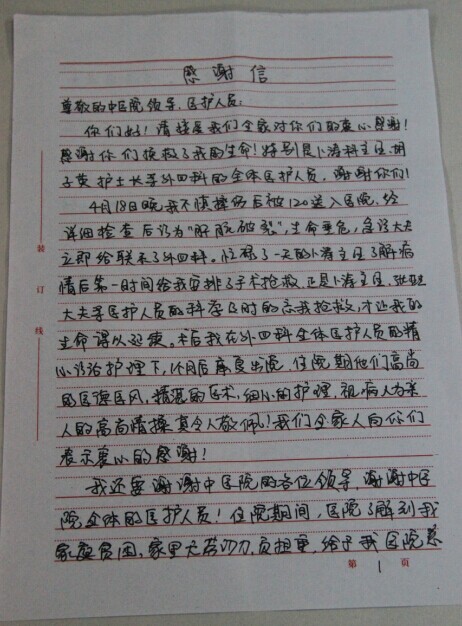 感谢信
尊敬的中医院领导、医护人员:
你们好!请接受我们全家对你们的衷心感谢!
感谢你们挽救了我的生命!特别是卜涛科主任、胡
子英护士长等外四科的全体医护人员,谢谢你们!
4月18日晚我不慎摔伤后被120送入医院,经
详细检查后诊为"肝脏破裂",生命垂危,急诊大夫
立即给联系了外四科。忙碌了一天的卜涛主任了解病
情后第一时间给我安排了手术抢救,正是卜涛主任、张
大夫等医护人员的科学及时的忘我抢救,才让我的
生命得以延续,术后我在外四科全体医护人员的精
心诊治护理下,1个月后康复出院,住院期他们高尚
的医德医风,精湛的医术,细心的护理,视病人为亲
人的高尚情操真令人敬佩!我们全家人向你们
表示衷心的感谢!
我还要谢谢中医院的各位领导,谢谢中医
院全体的医护人员!住院期间,医院了解到我
家庭贫困,家里负担重,给予我医院
装
订
线
第 1 页